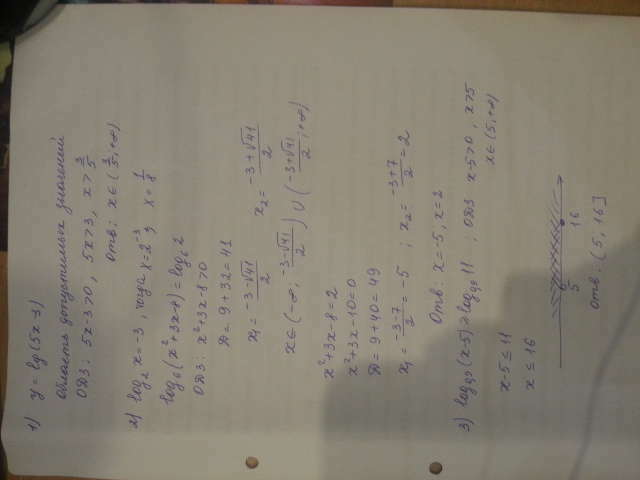 1) y = lg(5x-3)
Область допустимых значений
ОДЗ: 5x-3>0, 5x>3, x>3/5
Отв: x∈(3/5; +∞)
2) log₂ x = -3, тогда x = 2⁻³; x = 1/8
log₆(x²+3x-8) = log₆ 2
ОДЗ: x²+3x-8>0
D = 9+32 = 41
x₁ = (-3-√41)/2 x₂ = (-3+√41)/2
x∈(-∞; (-3-√41)/2) ∪ ((-3+√41)/2; +∞)
x²+3x-8=2
x²+3x-10=0
D = 9+40 = 49
x₁ = (-3-7)/2 = -5; x₂ = (-3+7)/2 = 2
Отв: x=-5, x=2
3) log₀,₉(x-5) ≥ log₀,₉ 11; ОДЗ x-5>0, x>5
x∈(5, +∞)
x-5 ≤ 11
x ≤ 16
5 16
Отв: (5, 16]